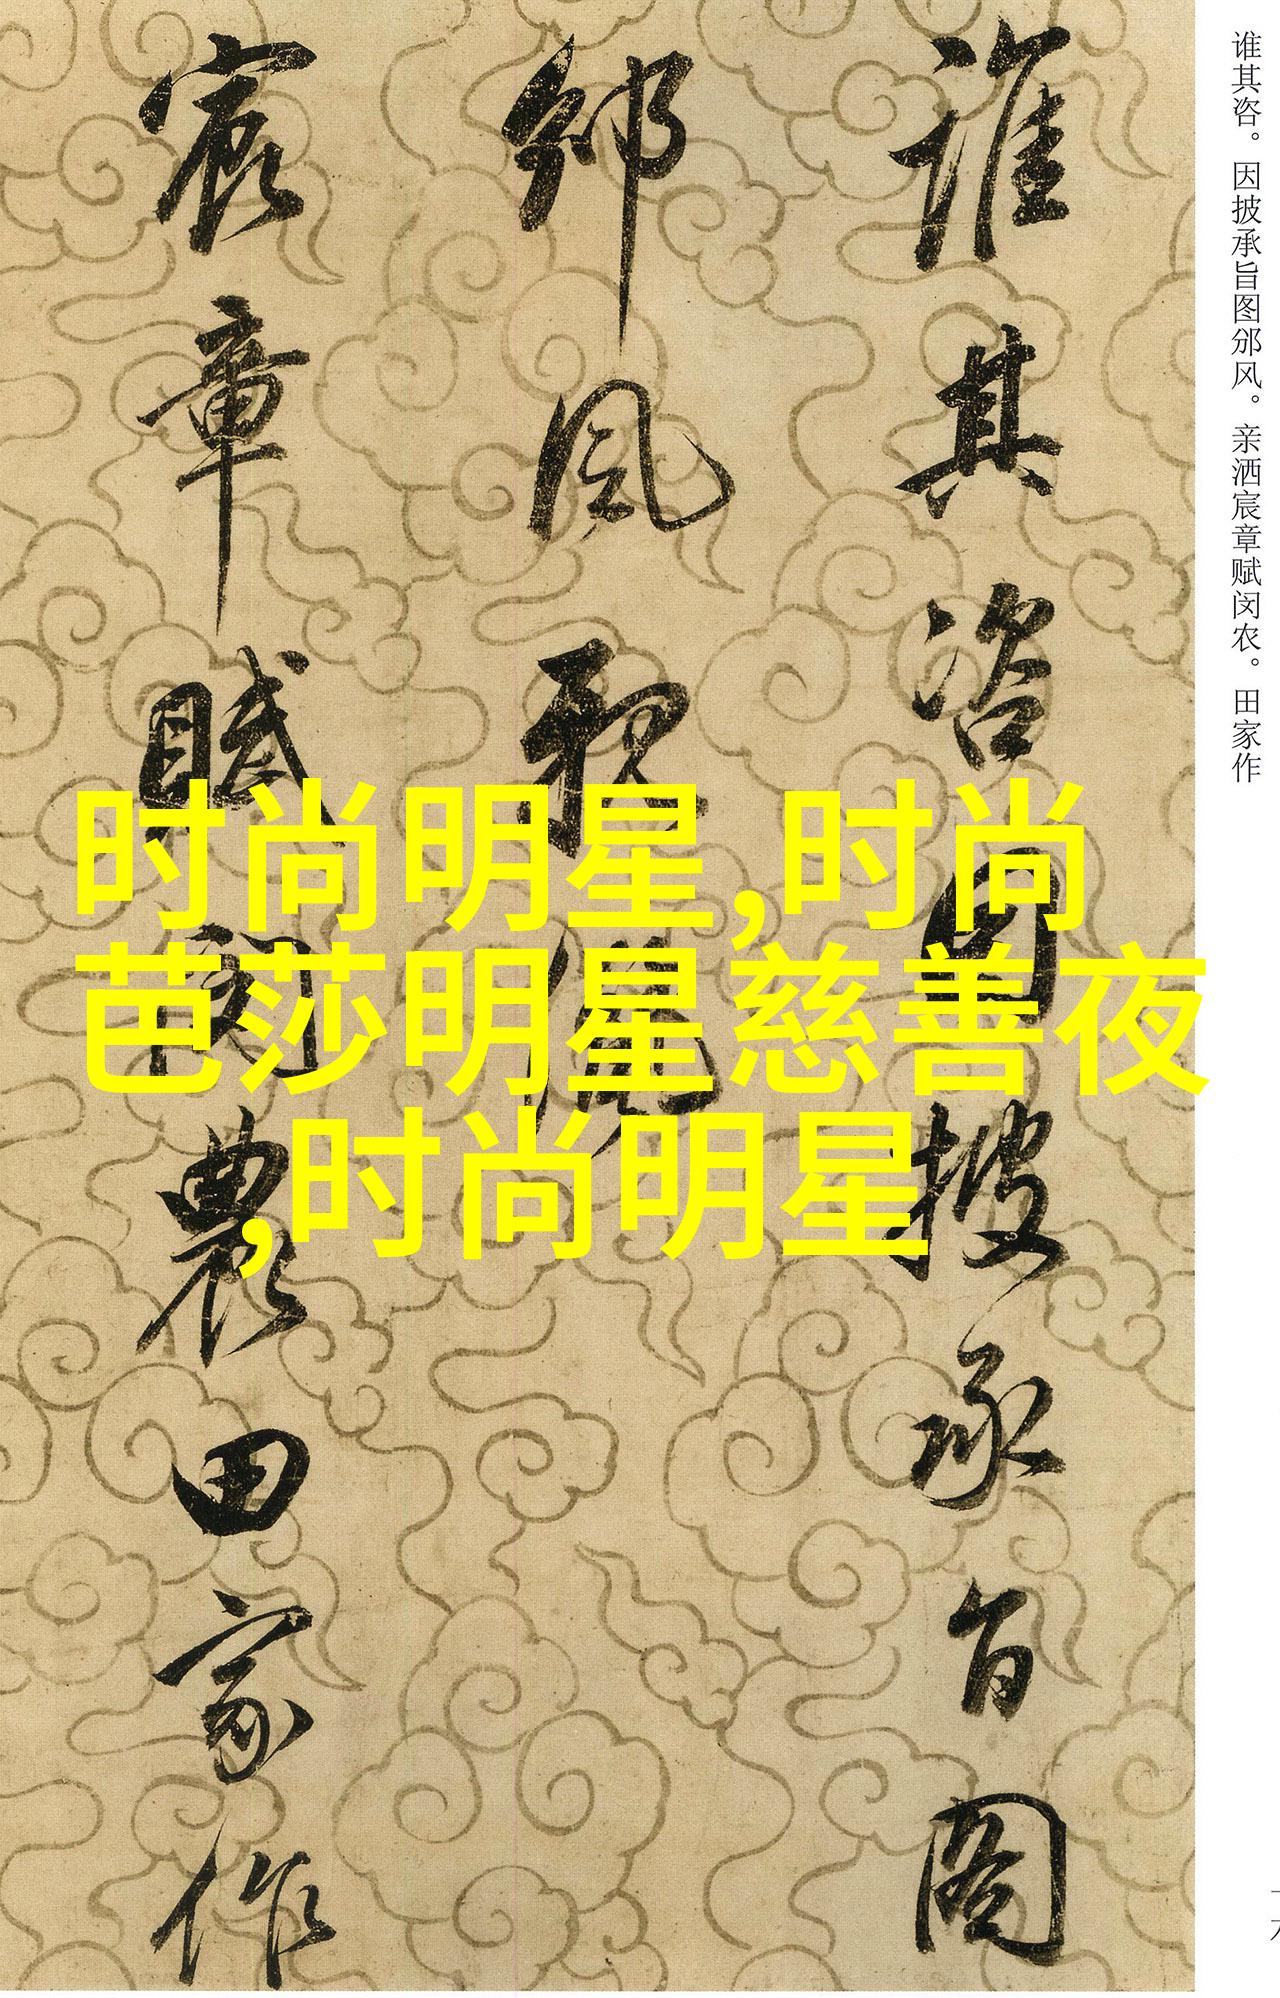 谁其咨因披承旨图
邠风亲洒
宸章赋闵农田家作
谁其咨。因披承旨图邠风。亲洒宸章赋闵农。田家作
时尚明星,时尚
芭莎明星慈善夜
,时尚明星